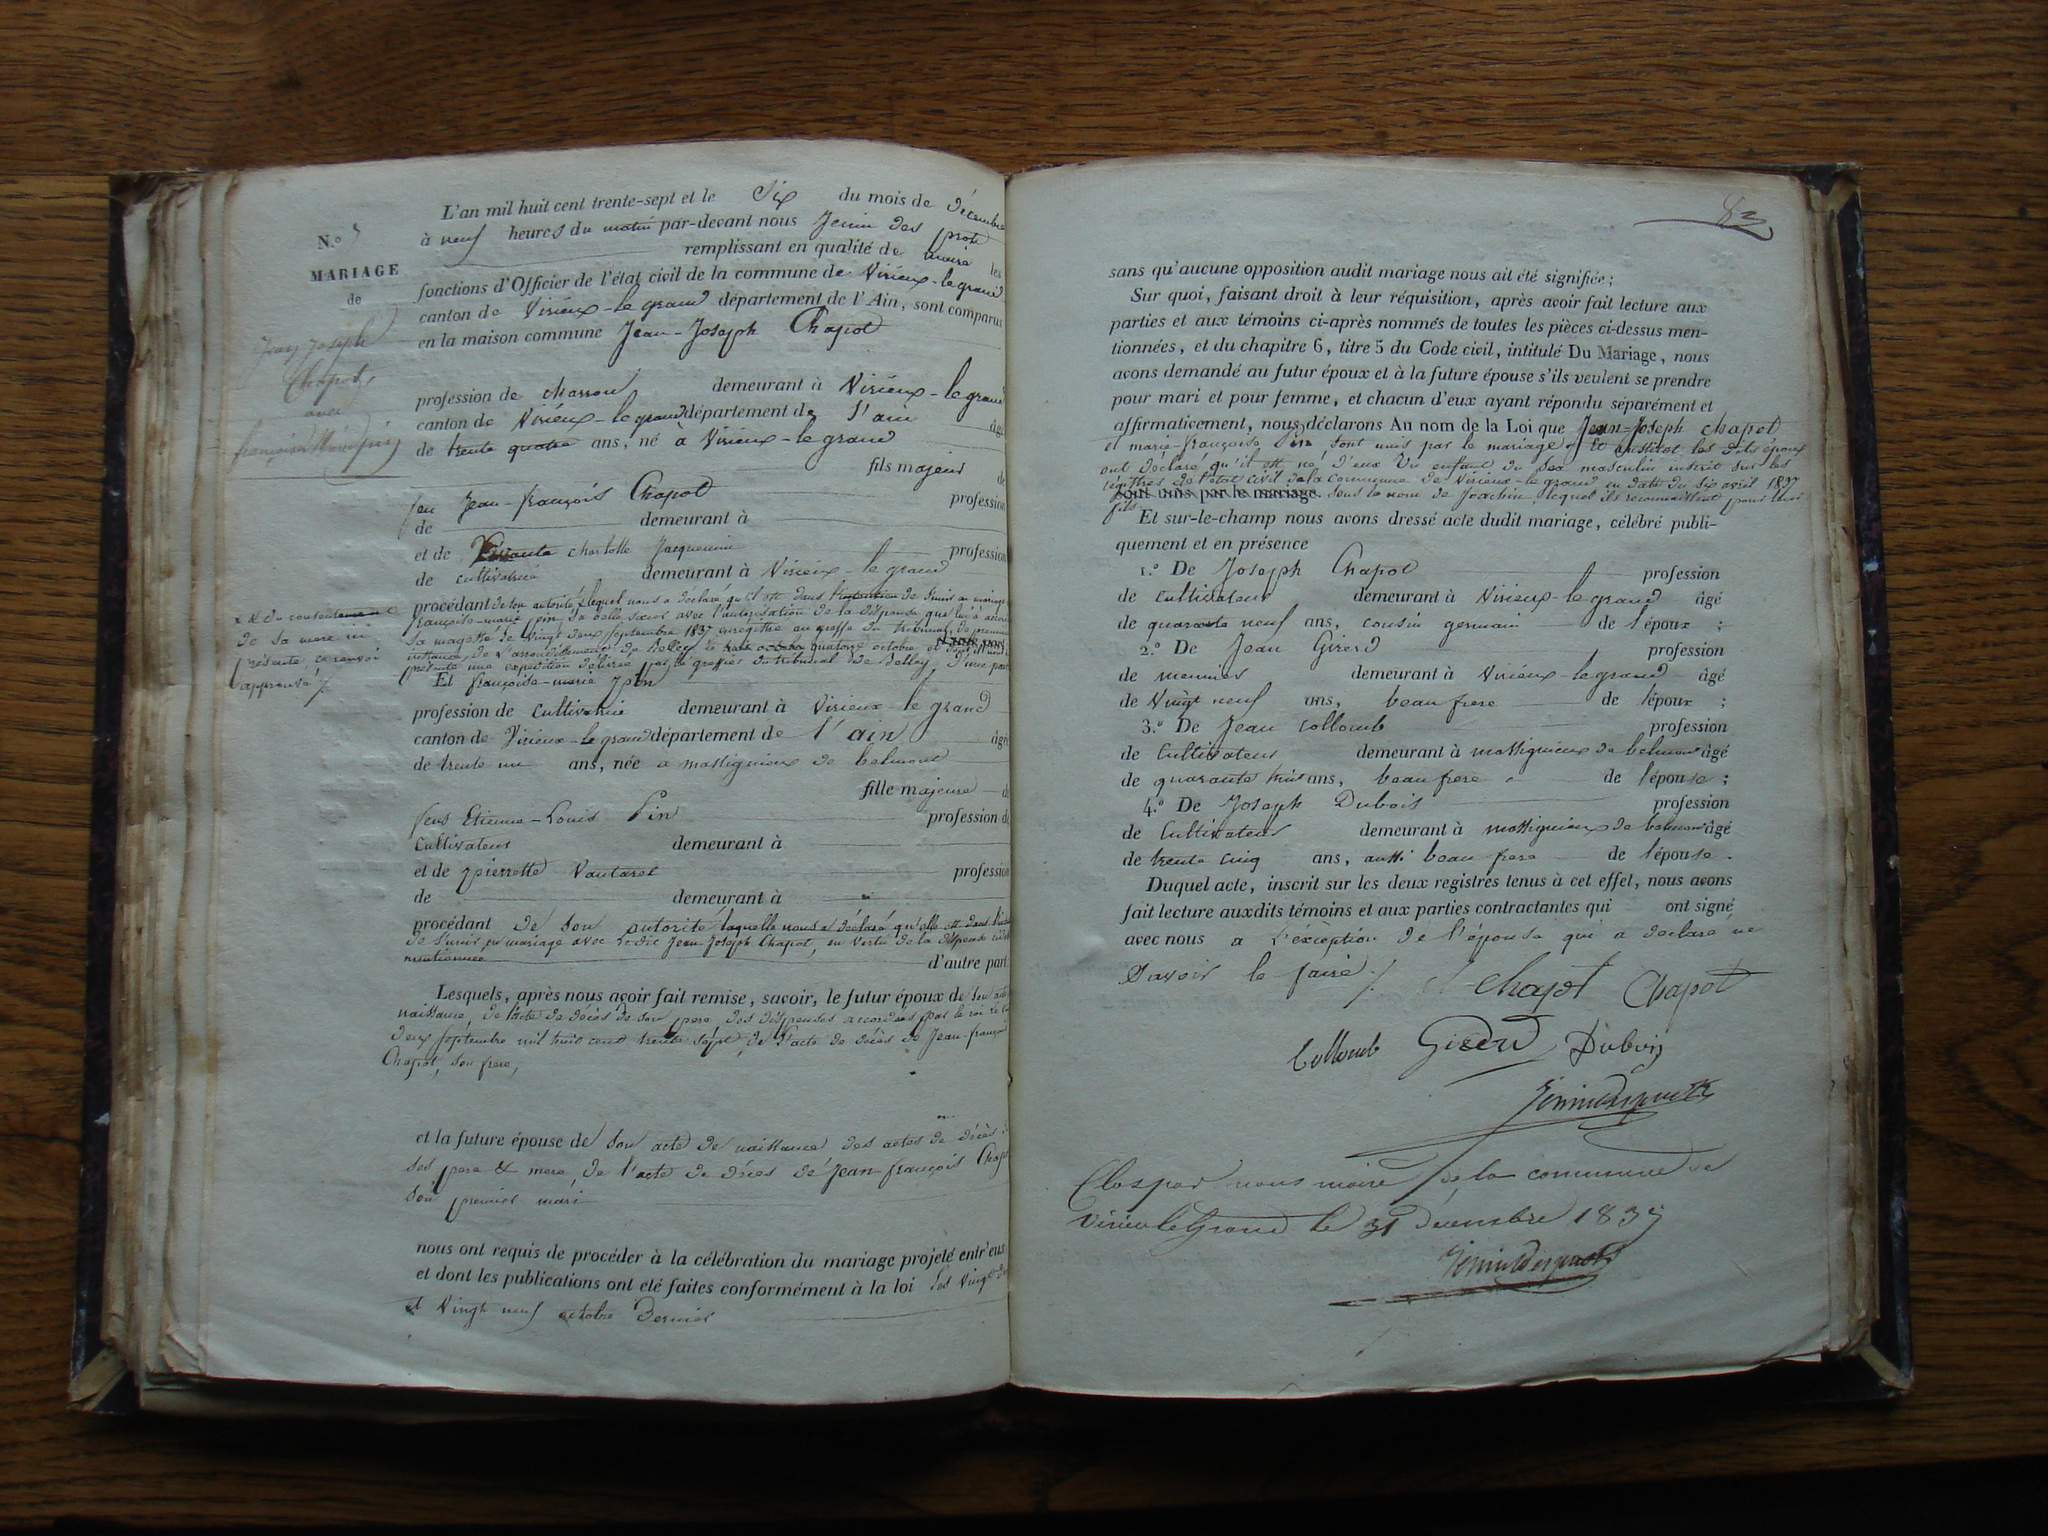 N.º 5
MARIAGE
de
Jean Joseph
Chapot,
avec
françoise Marie pin
L'an mil huit cent trente-sept et le Six du mois de décembre
à neuf heures du matin par-devant nous Jenin des prots
remplissant en qualité de maire les
fonctions d'Officier de l'état civil de la commune de Virieux-le grand
canton de Virieux-le grand département de l'Ain, sont comparus
en la maison commune Jean-Joseph Chapot
profession de charron demeurant à Virieux-le grand
canton de Virieux-le grand département de l'ain âgé
de trente quatre ans, né à Virieux-le grand
fils majeur de
feu Jean-françois Chapot profession
de demeurant à
et de charlotte Jacquemin profession
de cultivatrice demeurant à Virieux-le grand
procédant de son autorité, lequel nous a déclaré qu'il est dans l'intention de s'unir en mariage
françoise-marie pin sa belle sœur avec l'autorisation de la dispense que lui a accordé
sa magesté le vingt deux septembre 1837 enregistré au greffe du tribunal de première
instance de l'arrondissement de Belley le quatorze octobre et dont il nous
présente une expédition délivrée par le greffier du tribunal de Belley, d'une part
x & du consentement
de sa mere ici
présente, ce renvoi
approuvé /.
Et françoise-marie pin
profession de Cultivatrice demeurant à Virieux-le grand
canton de Virieux-le grand département de l'ain âgée
de trente un ans, née a massignieux de belmont
fille majeure de
feus Etienne-Louis Pin profession de
Cultivateur demeurant à
et de pierrette Vautaret profession
de demeurant à
procédant de son autorité laquelle nous a déclaré qu'elle est dans l'intention
de s'unir en mariage avec Ledit Jean-Joseph Chapot, en vertu de la dispense
mentionnée d'autre part.
Lesquels, après nous avoir fait remise, savoir, le futur époux de son acte
naissance, de l'acte de décès de son pere, des dispenses accordées par le roi le
deux septembre mil huit cent trente sept, de l'acte de décès de Jean-françois
Chapot, son frere,
et la future épouse de son acte de naissance des actes de décès de
ses pere & mere, de l'acte de décès de Jean-françois Chapot
son premier mari
nous ont requis de procéder à la célébration du mariage projeté entr'eux
et dont les publications ont été faites conformément à la loi Les Vingt deux
et Vingt neuf octobre Dernier
82
sans qu'aucune opposition audit mariage nous ait été signifiée;
Sur quoi, faisant droit à leur réquisition, après avoir fait lecture aux
parties et aux témoins ci-après nommés de toutes les pièces ci-dessus men-
tionnées, et du chapitre 6, titre 5 du Code civil, intitulé Du Mariage, nous
avons demandé au futur époux et à la future épouse s'ils veulent se prendre
pour mari et pour femme, et chacun d'eux ayant répondu séparément et
affirmativement, nous déclarons Au nom de la Loi que Jean-Joseph chapot
et marie-françoise Pin sont unis par le mariage, Et aussitot les dits époux
ont déclaré qu'il est né d'eux Un enfant du sex masculin inscrit sur les
régistres de l'état civil de la commune de Virieux-le grand en date du six avril 1837
sont unis par le mariage. sous le nom de Joachim lequel ils reconnaissent pour leur
fils
Et sur-le-champ nous avons dressé acte dudit mariage, célébré publi-
quement et en présence
1.º De Joseph Chapot profession
de cultivateur demeurant à Virieux-le grand âgé
de quarante neuf ans, cousin germain de l'époux ;
2.º De Jean Girerd profession
de meunier demeurant à Virieux-le grand âgé
de Vingt neuf ans, beau frere de l'époux ;
3.º De Jean Collomb profession
de Cultivateur demeurant à massignieux de belmont âgé
de quarante trois ans, beau frere de l'épouse ;
4.º De Joseph Dubois profession
de Cultivateur demeurant à massignieux de belmont âgé
de trente cinq ans, aussi beau frere de l'épouse.
Duquel acte, inscrit sur les deux registres tenus à cet effet, nous avons
fait lecture auxdits témoins et aux parties contractantes qui ont signé
avec nous a L'exception de l'épouse qui a déclaré ne
savoir le faire /. chapot Chapot
Collomb Girerd Dubois
Clos par nous maire de la commune de
Virieu le Grand le 31 décembre 1837